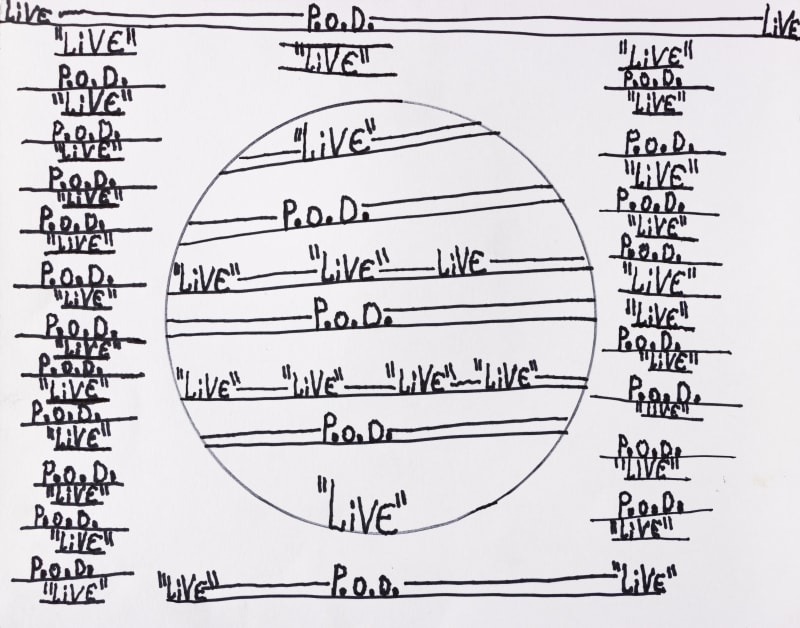 LiVE P.o.D. LiVE
"LiVE"
P.o.D.
"LiVE"
P.o.D.
"LiVE"
P.o.D.
"LiVE"
P.o.D.
"LiVE"
P.o.D.
"LiVE"
P.o.D.
"LiVE"
P.o.D.
"LiVE"
P.o.D.
"LiVE"
P.o.D.
"LiVE"
P.o.D.
"LiVE"
P.o.D.
"LiVE"
"LiVE"
"LiVE"
P.o.D.
"LiVE" "LiVE" LiVE
P.o.D.
"LiVE" "LiVE" "LiVE" "LiVE"
P.o.D.
"LiVE"
"LiVE"
P.o.D.
"LiVE"
P.o.D.
"LiVE"
P.o.D.
"LiVE"
P.o.D.
"LiVE"
"LiVE"
P.o.D.
"LiVE"
P.o.D.
"LiVE"
P.o.D.
"LiVE"
P.o.D.
"LiVE"
"LiVE" P.o.D. "LiVE"